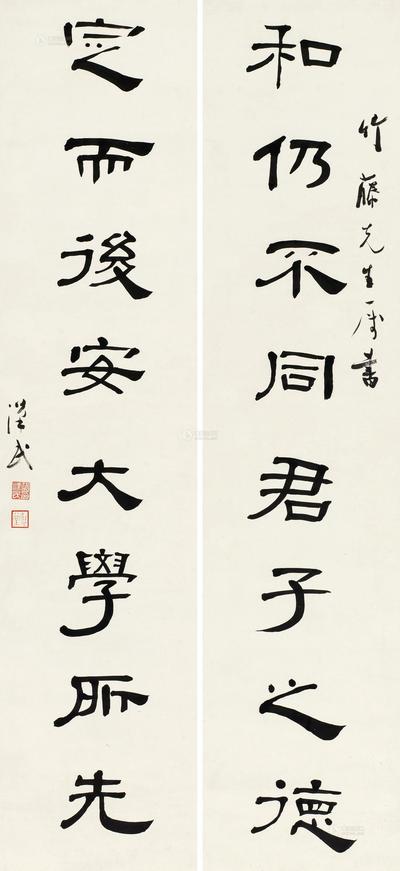 竹藤先生属书
和仍不同君子之德
定而後安大學所先
漢民